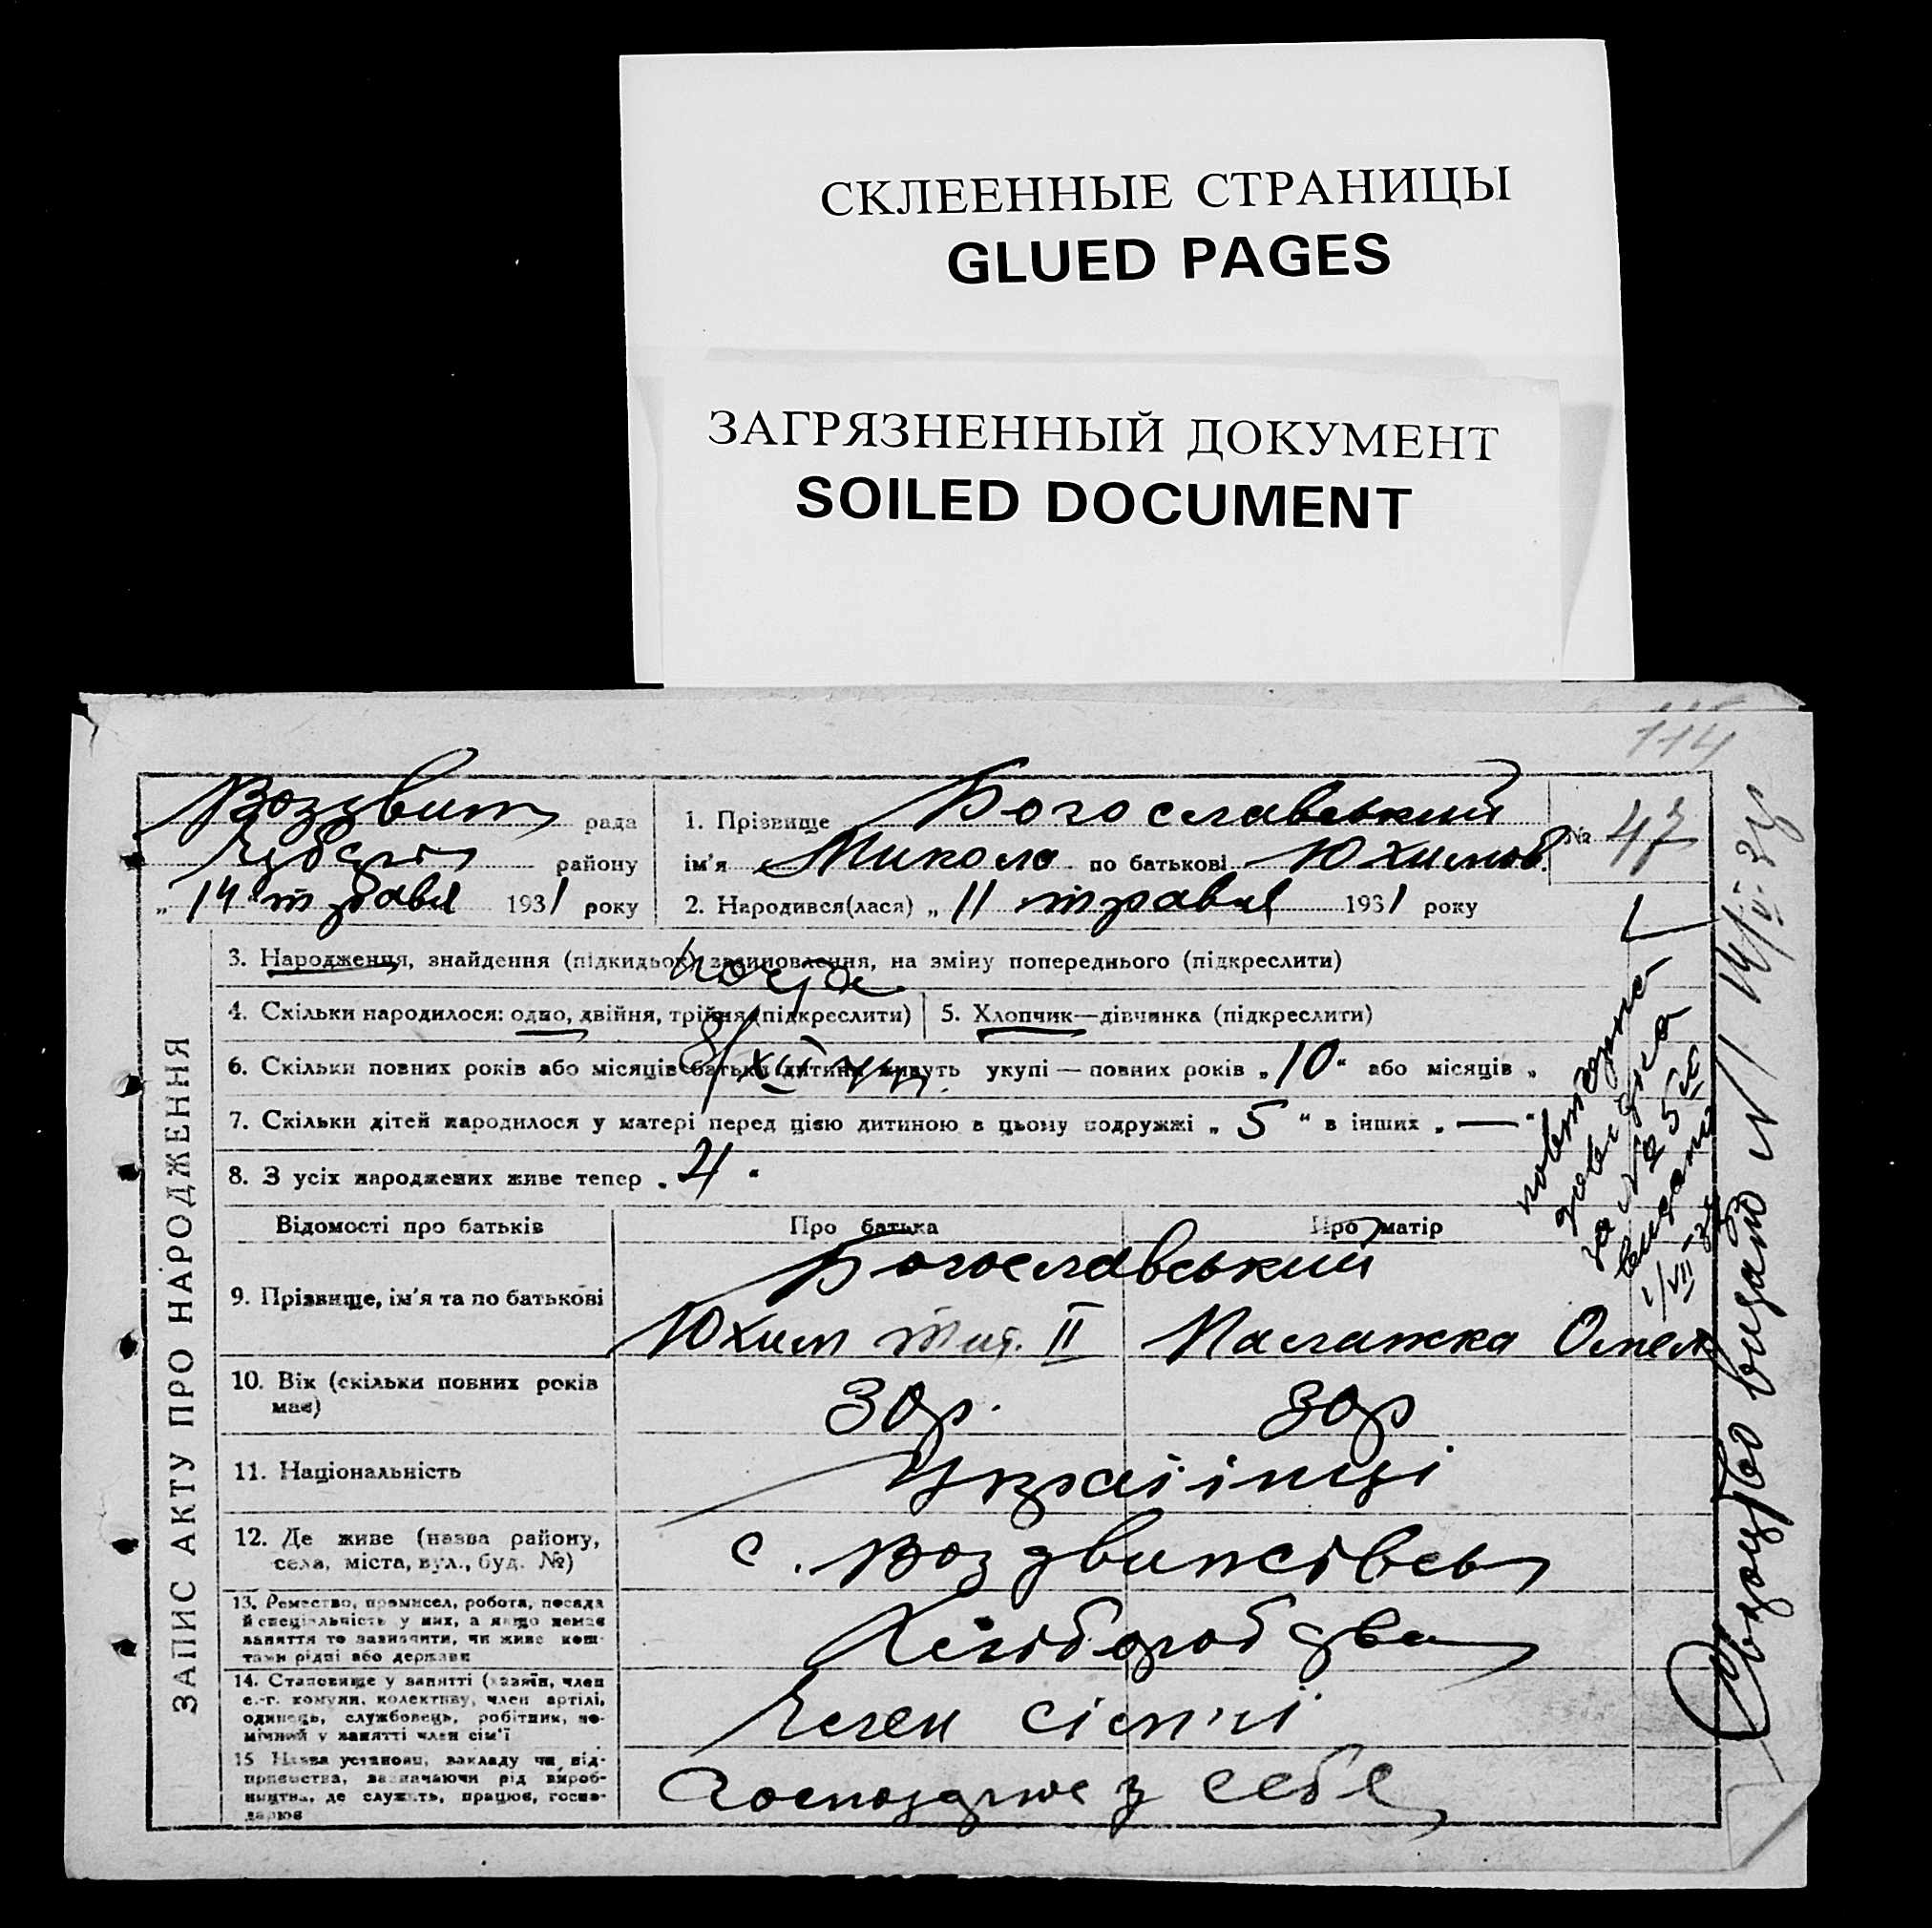 СКЛЕЕННЫЕ СТРАНИЦЫ
GLUED PAGES
ЗАГРЯЗНЕННЫЙ ДОКУМЕНТ
SOILED DOCUMENT
114
Воздвиж рада
району
„ 14 " травня 1931 року
1. Прізвище Богославський
ім'я Микола по батькові Юхимов.
№ 47
2. Народився(лася) „ 11 травня 1931 року
ЗАПИС АКТУ ПРО НАРОДЖЕННЯ
3. Народження, знайдення (підкидьок) всиновлення, на зміну попереднього (підкреслити)
4. Скільки народилося: одно, двійня, трійня (підкреслити)
5. Хлопчик—дівчинка (підкреслити)
6. Скільки повних років або місяців батьки дитини живуть укупі — повних років „ 10 " або місяців „
7. Скільки дітей народилося у матері перед цією дитиною в цьому подружжі „ 5 " в інших „ — "
8. З усіх народжених живе тепер „ 4 "
Відомості про батьків
Про батька
Про матір
9. Прізвище, ім'я та по батькові
Богославський
Юхим Тит. II
Палажка Омел
10. Вік (скільки повних років має)
30р.
30р
11. Національність
Українці
12. Де живе (назва району,
села, міста, вул., буд. №)
с. Воздвижівськ
13. Ремество, промисел, робота, посада
й спеціяльність у них, а якщо немає
заняття то зазначити, чи живе кош-
тами рідні або держави
Хліборобства
14. Становище у занятті (хазяїн, член
с.-г. комуни, колективу, член артілі,
одинець, службовець, робітник, по-
мічний у занятті член сім'ї
Член сім'ї
15 Назва установи, закладу чи під-
приємства, зазначаючи рід вироб-
ництва, де служить, працює, госпо-
дарює
Господарює у себе
видано